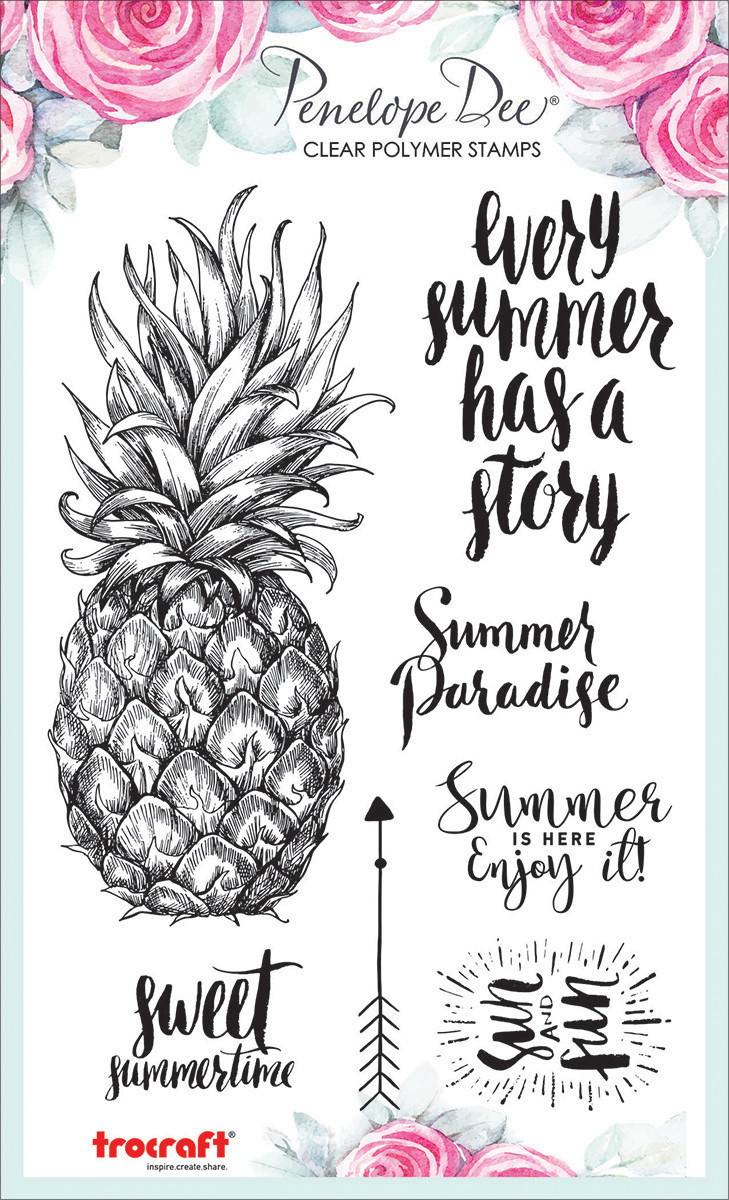 Penelope Dee®
CLEAR POLYMER STAMPS
every
summer
has a
story
Summer
Paradise
Summer
IS HERE
Enjoy it!
sun
AND
fun
sweet
summertime
trocraft®
inspire.create.share.